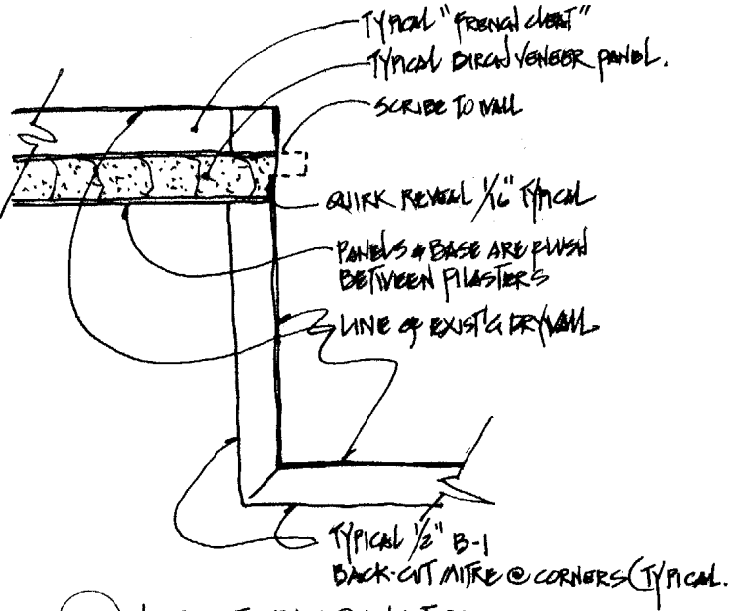 TYPICAL "FRENCH CLEAT"
TYPICAL BIRCH VENEER PANEL.
SCRIBE TO WALL
QUIRK REVEAL 1/16" TYPICAL
PANELS & BASE ARE FLUSH
BETWEEN PILASTERS
LINE OF EXIST'G DRYWALL.
TYPICAL 1/2" B-1
BACK-CUT MITRE @ CORNERS (TYPICAL.